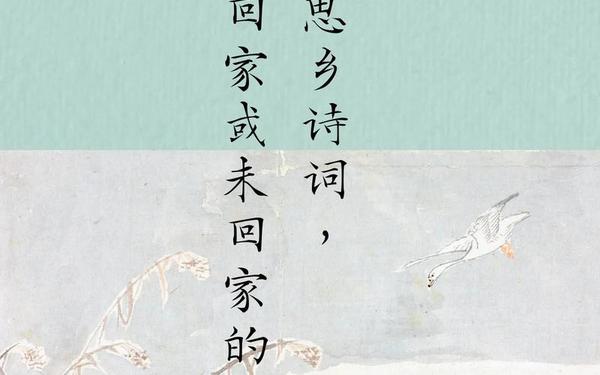 思乡诗词，
回家或未回家的